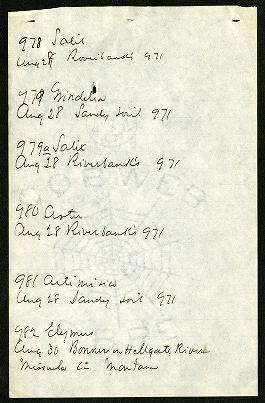 978 Salix
Aug 28 Riverbanks 971
979 Grindelia
Aug 28 Sandy soil 971
979a Salix
Aug 28 Riverbanks 971
980 Aster
Aug 28 Riverbanks 971
981 Artimisia
Aug 28 Sandy soil 971
982 Elymus
Aug 30 Bonner on Hellgate River
Missoula Co Montana